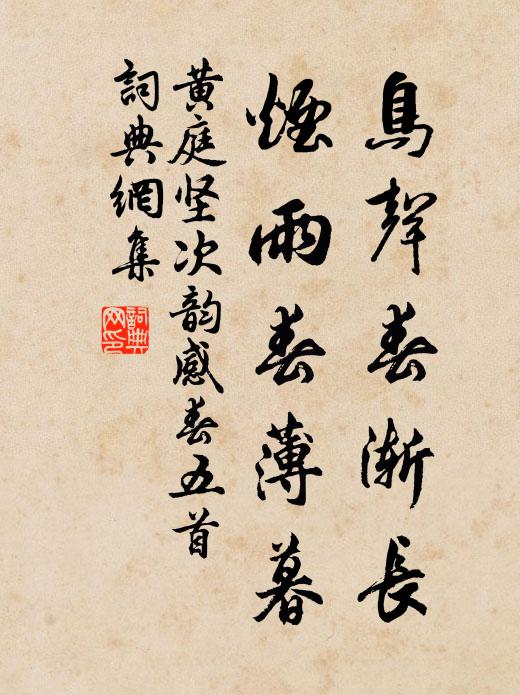 鳥聲春漸長
煙雨春薄暮
黃庭坚次韵感春五首
詞典網集
詞典
网印